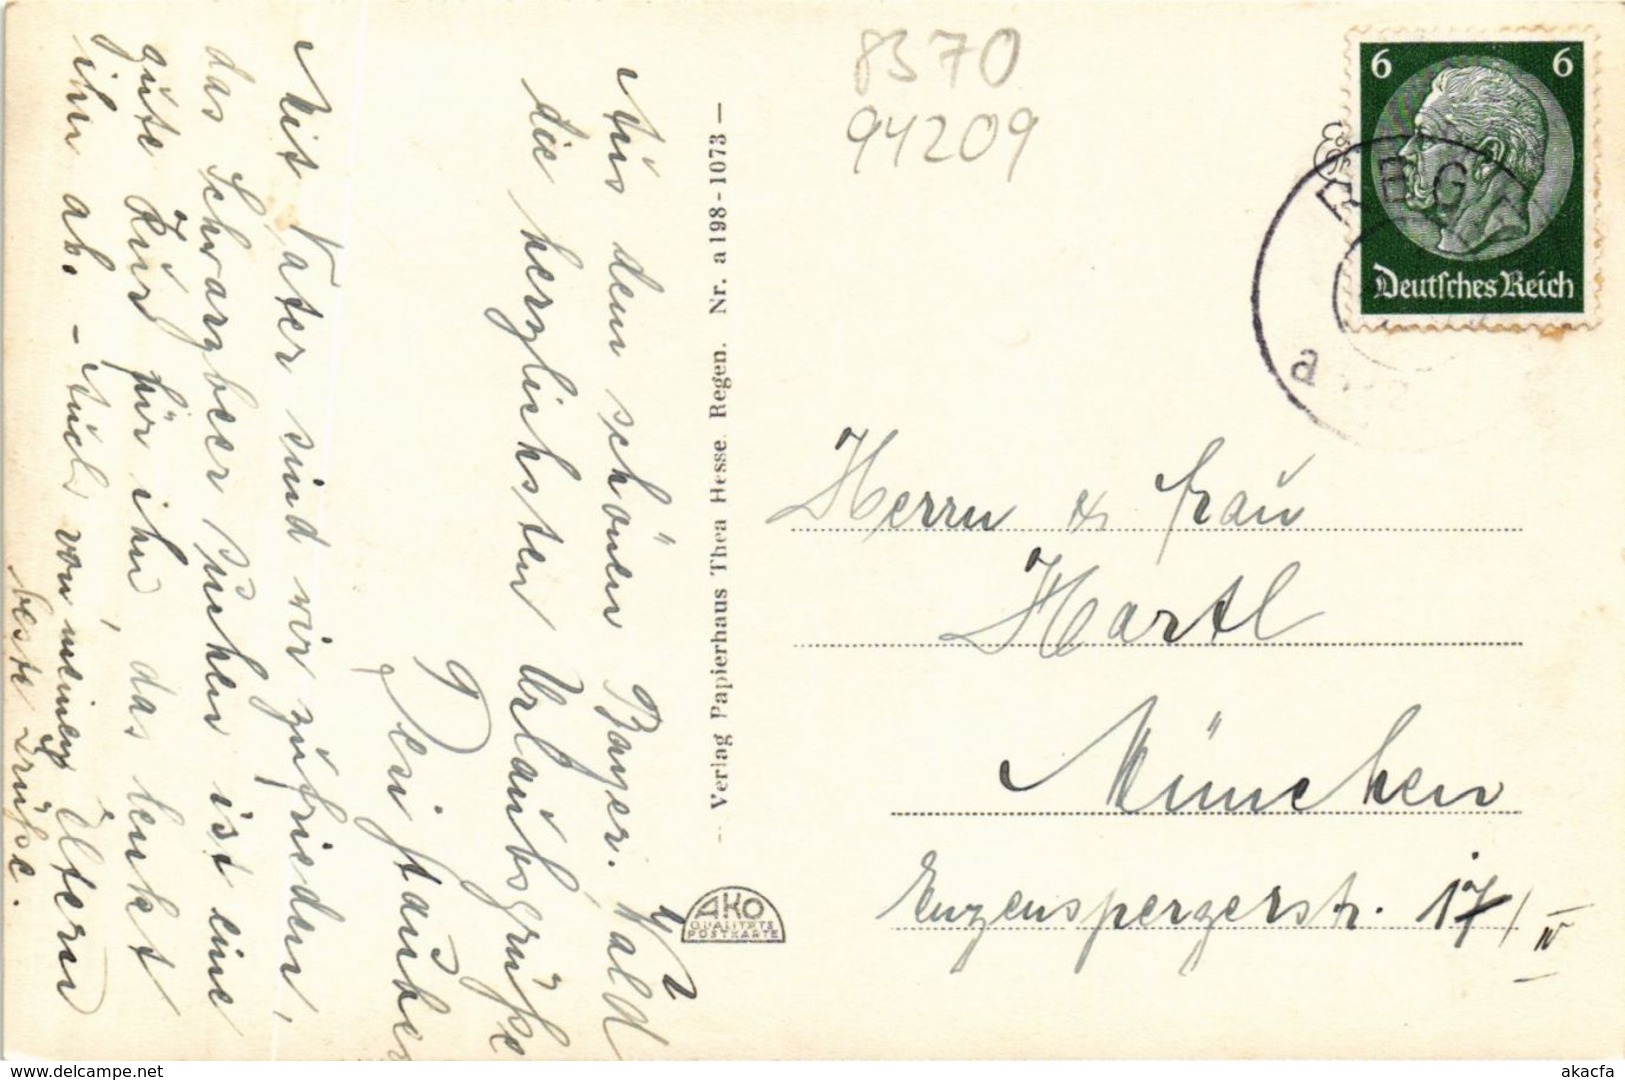 8370
94209
6 6
Deutsches Reich
REGEN
a
Aus dem schönen Bayer. Wald
die herzlichsten Urlaubsgrüße
Dein
Mit Vater sind wir zufrieden,
das Schwarzbeer suchen ist eine
gute Kur für ihn, das lenkt
ihn ab. - Auch von meinen Eltern
beste Grüße.
— Verlag Papierhaus Thea Hesse. Regen. Nr. a 198 - 1073 —
AKO
QUALITÄTS
POSTKARTE
Herrn & Frau
Hartl
München
Enzenspergerstr. 17/IV
akacfa